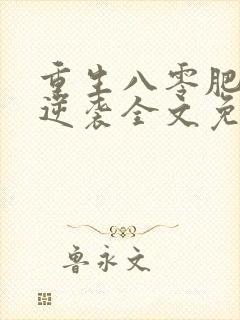 重生八零肥
逆袭全文免
鲁永文